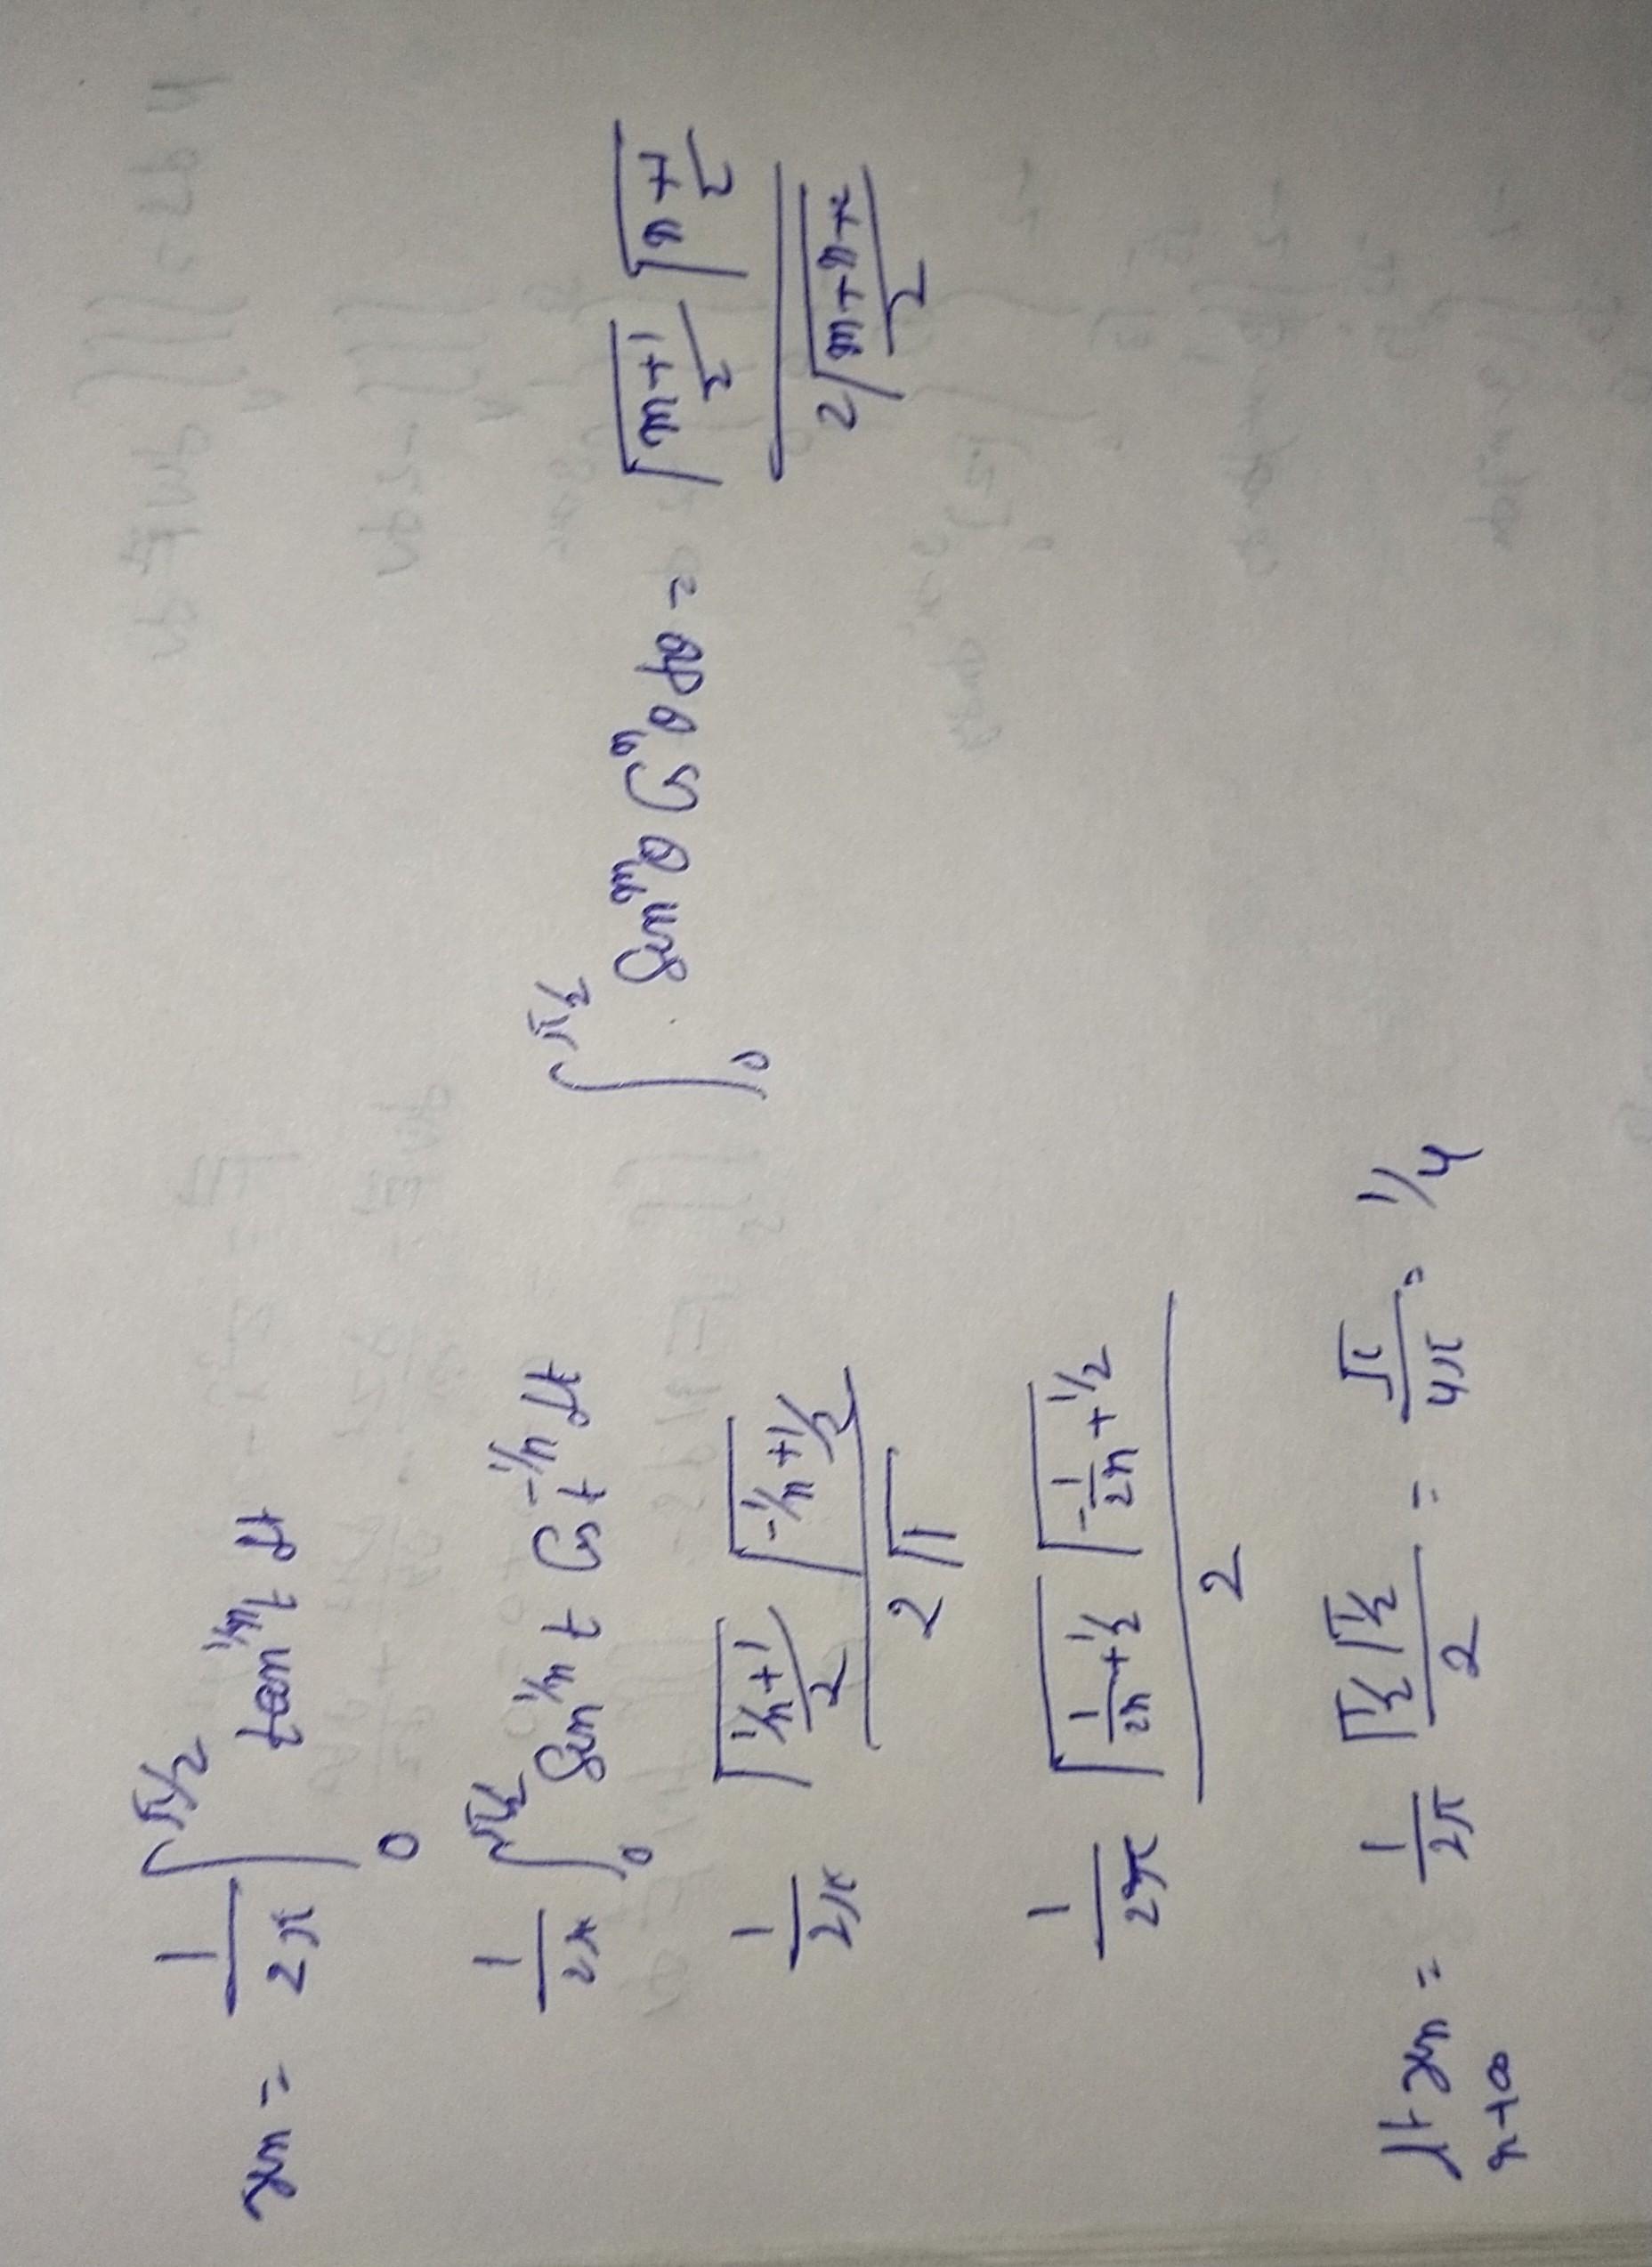 xn = 1/2π ∫₀^{π/2} tan^{1/n} t dt
1/2π ∫₀^{π/2} Sin^{1/n} t Cos t^{-1/n} dt
∫₀^{π/2} Sin^m θ Cos^n θ dθ = (Γ((m+1)/2) Γ((n+1)/2)) / (2Γ((m+n+2)/2))
1/2π (Γ((1/n+1)/2) Γ((-1/n+1)/2)) / (2Γ1)
1/2π (Γ(1/2n + 1/2) Γ(-1/2n + 1/2)) / 2
lt n→∞ xn = 1/2π (Γ(1/2) Γ(1/2)) / 2 = π/4π = 1/4